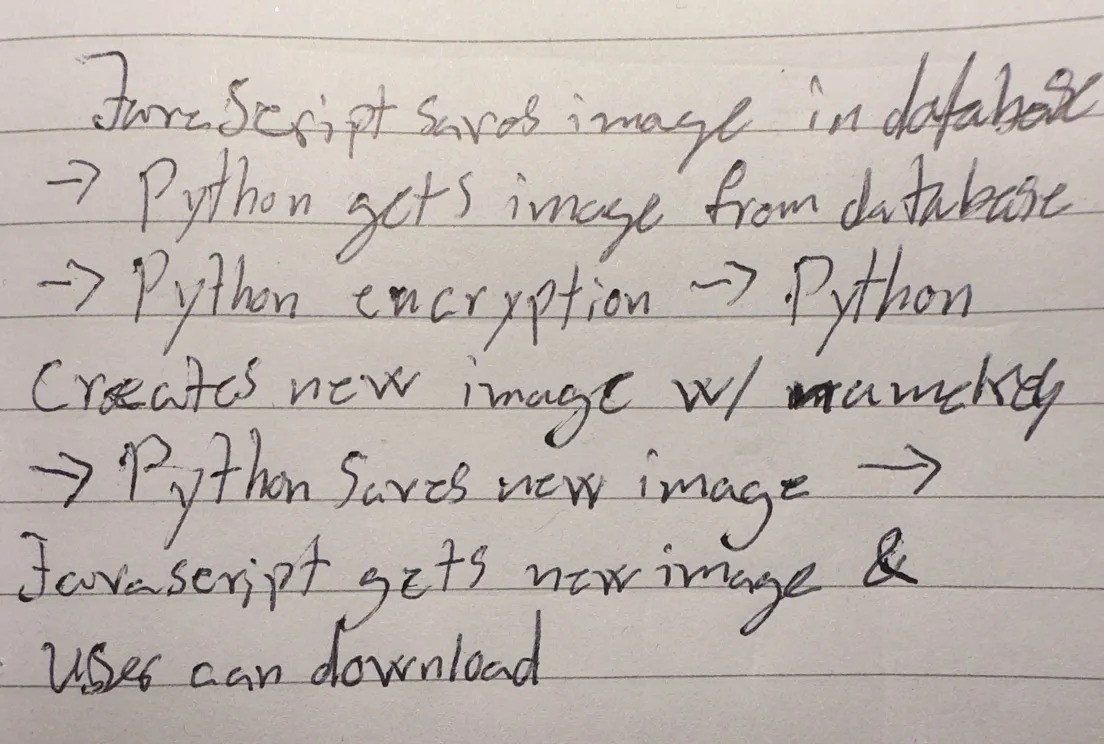 JavaScript saves image in database
→ Python gets image from database
→ Python encryption → Python
Creates new image w/
→ Python saves new image →
Javascript gets new image &
user can download